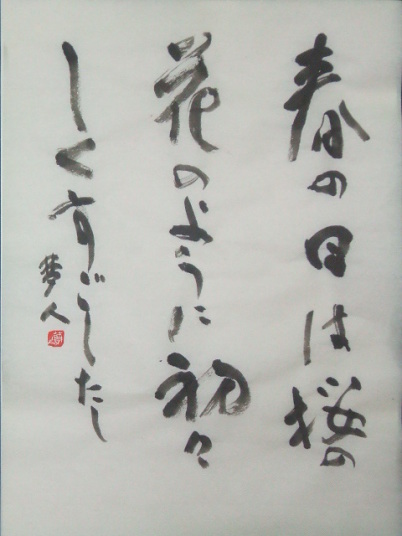 春の日は桜の
花のように初々
しくすごしたし
夢人